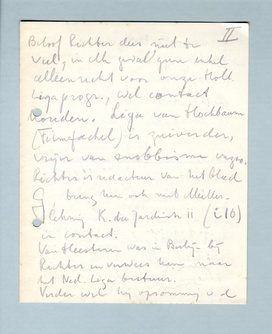 II
Beloof Richter dus niet te
veel, in elk geval geen enkel
alleenrecht voor onze Holl
Liga progr., wel contact
houden. Liga van Hochbaum
(Filmfackel) is zuiverder,
vrijer van snobbisme
Richter is redacteur van het blad
G breng hen ook met Müller.
Lehning K. du Jardinstr 11 (i10)
in contact.
Van Heesteren was in Berlijn bij
Richter en verwees hem naar
het Ned. Liga bestuur.
Verder wil hij opsomming v. d